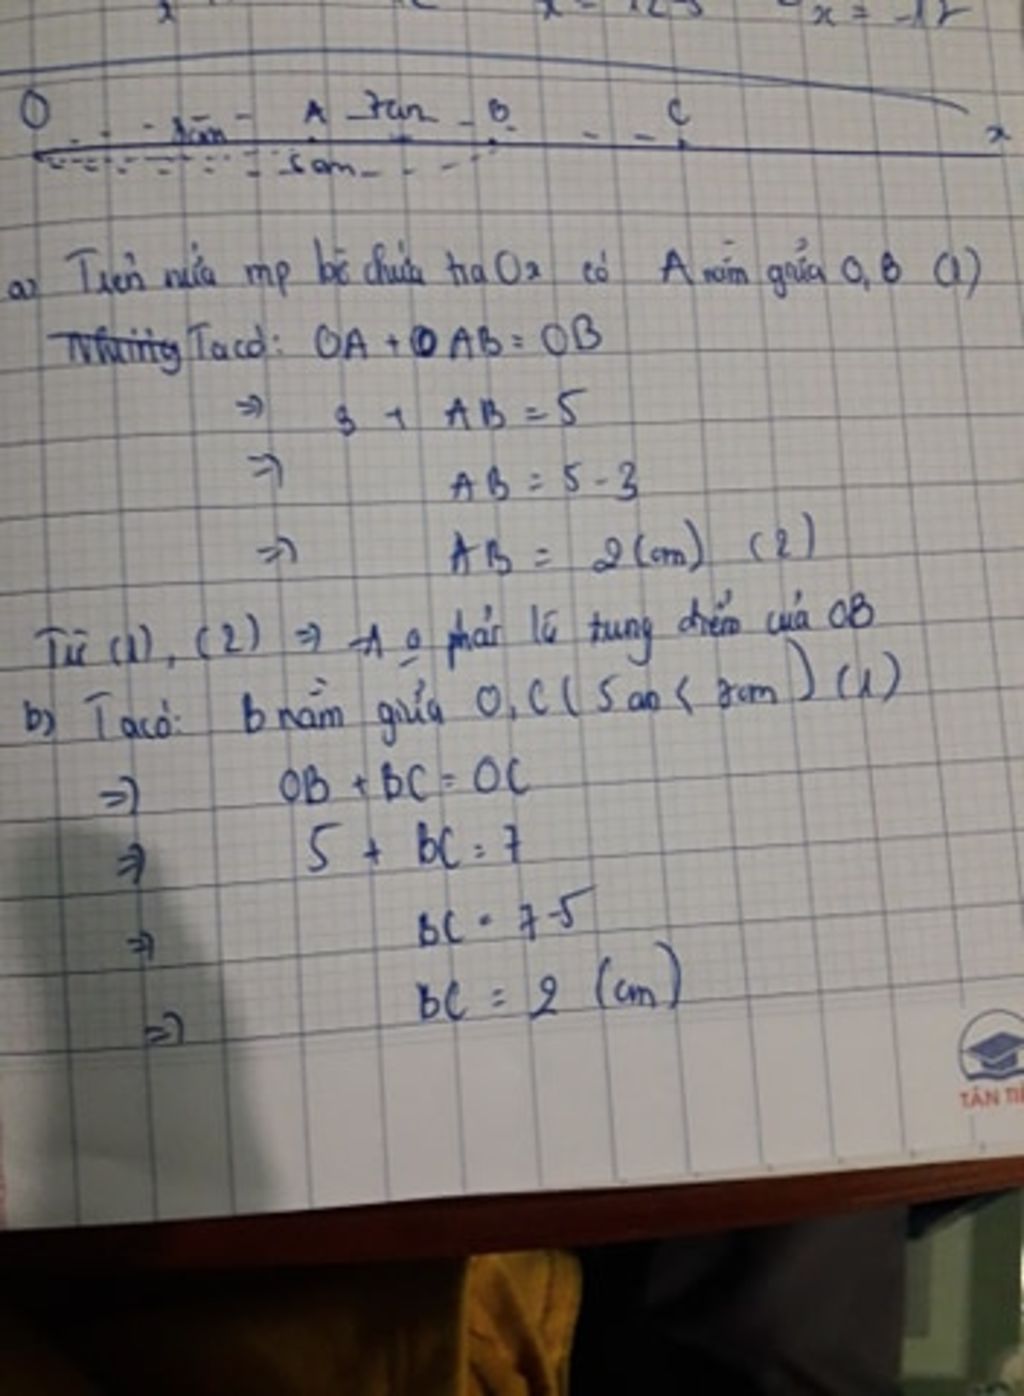 x = -12
O A 7cm B C x
5cm
a) Trên nửa mp bờ chứa tia Ox có A nằm giữa O, B (1)
Ta có: OA + AB = OB
=> 3 + AB = 5
=> AB = 5 - 3
=> AB = 2 (cm) (2)
Từ (1), (2) => A phải là trung điểm của OB
b) Ta có: B nằm giữa O, C (5cm < 7cm) (1)
=> OB + BC = OC
=> 5 + BC = 7
=> BC = 7-5
=> BC = 2 (cm)
TÂN TI